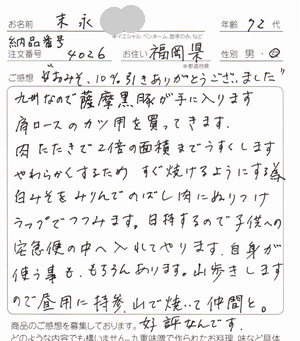 お名前 末永 年齢 72 代
※イニシャル、ペンネーム、匿名のみ、など
納品番号
注文番号 4026 お住い 福岡県 性別 男・
※都道府県
ご感想 "おみそ、10%引きありがとうございました"
九州なので薩摩黒豚が手に入ります
肩ロースのカツ用を買ってきます。
肉たたきで2倍の面積までうすくします
やわらかくするため すぐ焼けるようにする為
白みそをみりんでのばし肉にぬりつけ
ラップでつつみます。日持するので子供への
宅急便の中へ入れてやります。自身が
使う事も、もちろんあります。山歩きします
ので昼用に持参、山で焼いて仲間と。
商品のご感想を募集しております。 好評なんです。
どのような内容でも構いません。九重味噌で作られたお料理、味など具体